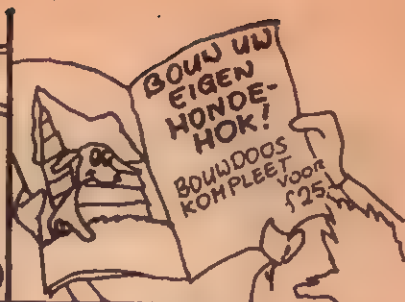 BOUW UW
EIGEN
HONDE-
HOK!
BOUWDOOS
KOMPLEET
VOOR
f25,